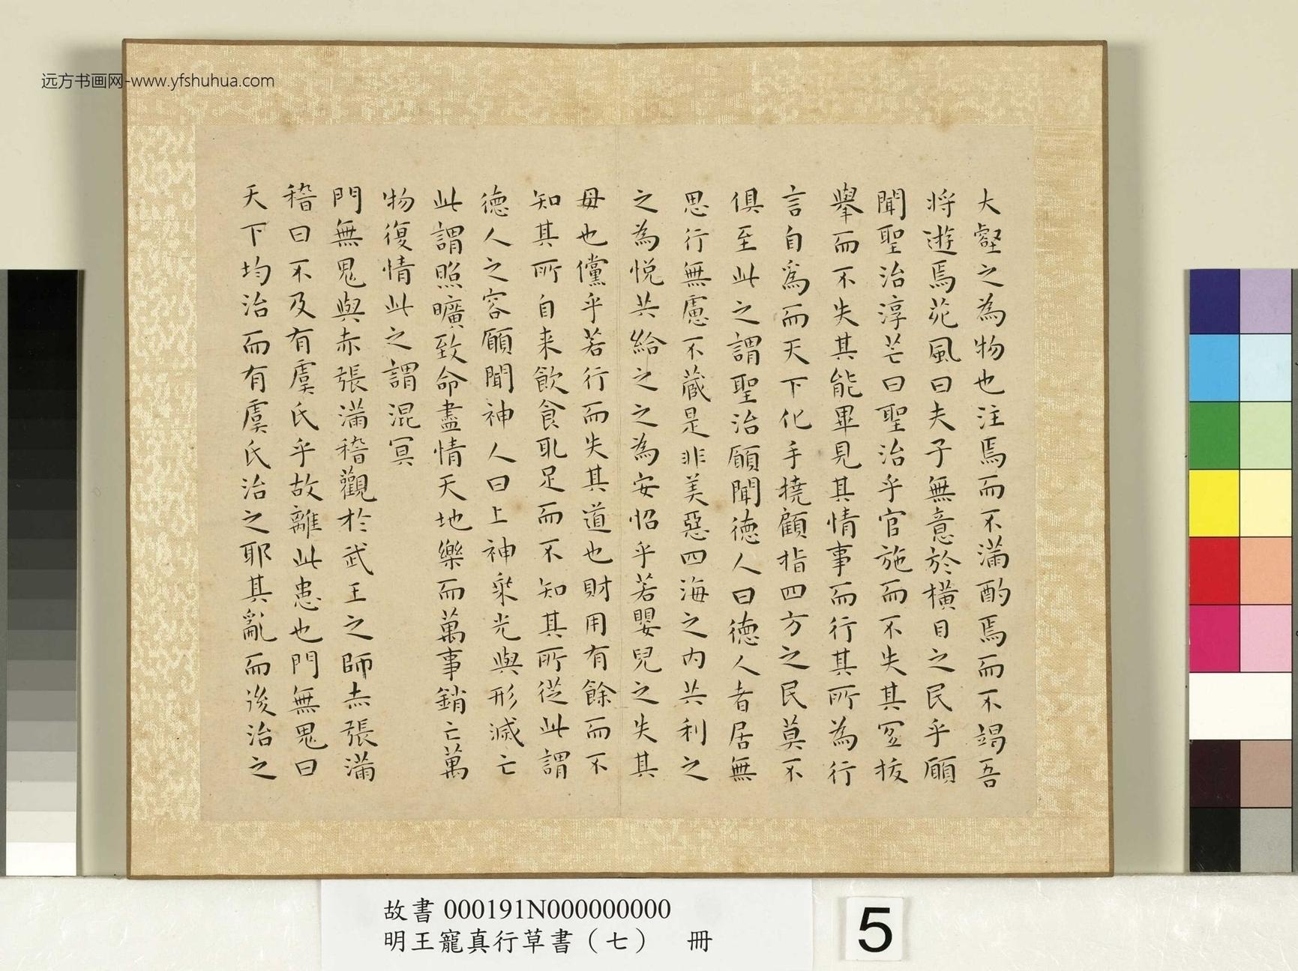 大壑之為物也注焉而不滿酌焉而不竭吾
將遊焉苑風曰夫子無意於橫目之民乎願
聞聖治淳芒曰聖治乎官施而不失其宜拔
舉而不失其能畢見其情事而行其所為行
言自為而天下化手撓顧指四方之民莫不
俱至此之謂聖治願聞德人曰德人者居無
思行無慮不藏是非美惡四海之內共利之
之為悅共給之之為安怊乎若嬰兒之失其
母也儻乎若行而失其道也財用有餘而不
知其所自来飲食取足而不知其所從此謂
德人之容願聞神人曰上神乘光與形滅亡
此謂照曠致命盡情天地樂而萬事銷亡萬
物復情此之謂混冥
門無鬼與赤張滿稽觀於武王之師赤張滿
稽曰不及有虞氏乎故離此患也門無鬼曰
天下均治而有虞氏治之耶其亂而後治之
远方书画网-www.yfshuhua.com
故書 000191N000000000
明王寵真行草書（七） 冊
5